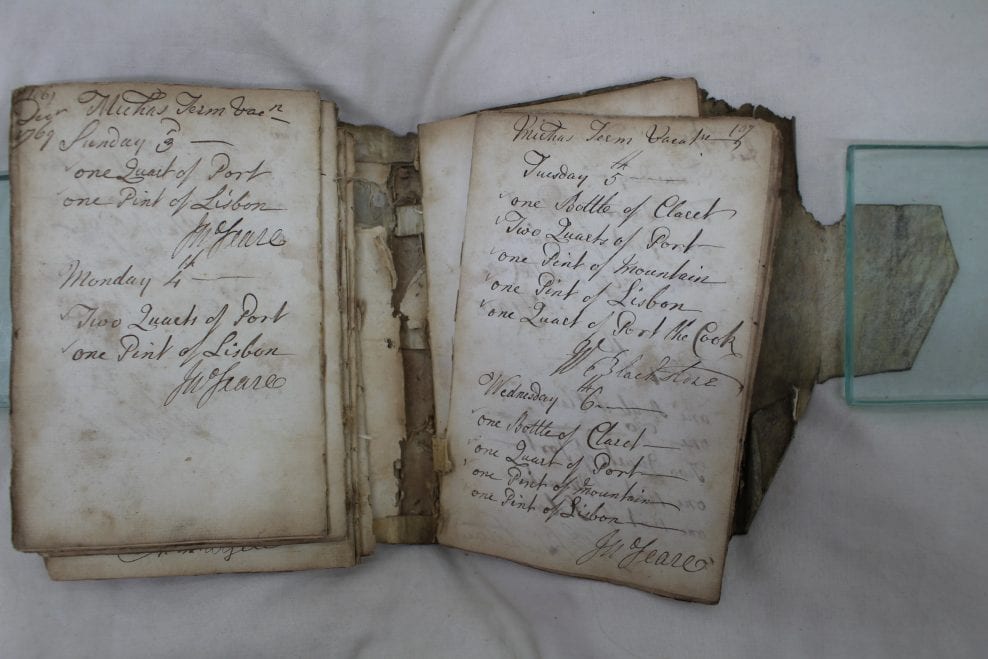 1769
Michas Term Vacn
Sunday 3d
one Quart of Port
one Pint of Lisbon
Jno Feare
Monday 4th
Two Quarts of Port
one Pint of Lisbon
Jno Feare
Michas Term Vacatn
Tuesday 5th
one Bottle of Claret
Two Quarts of Port
one Pint of Mountain
one Pint of Lisbon
one Quart of Port the Cook
W Blackstone
Wednesday 6th
one Bottle of Claret
one Quart of Port
one Pint of Mountain
one Pint of Lisbon
Jno Feare